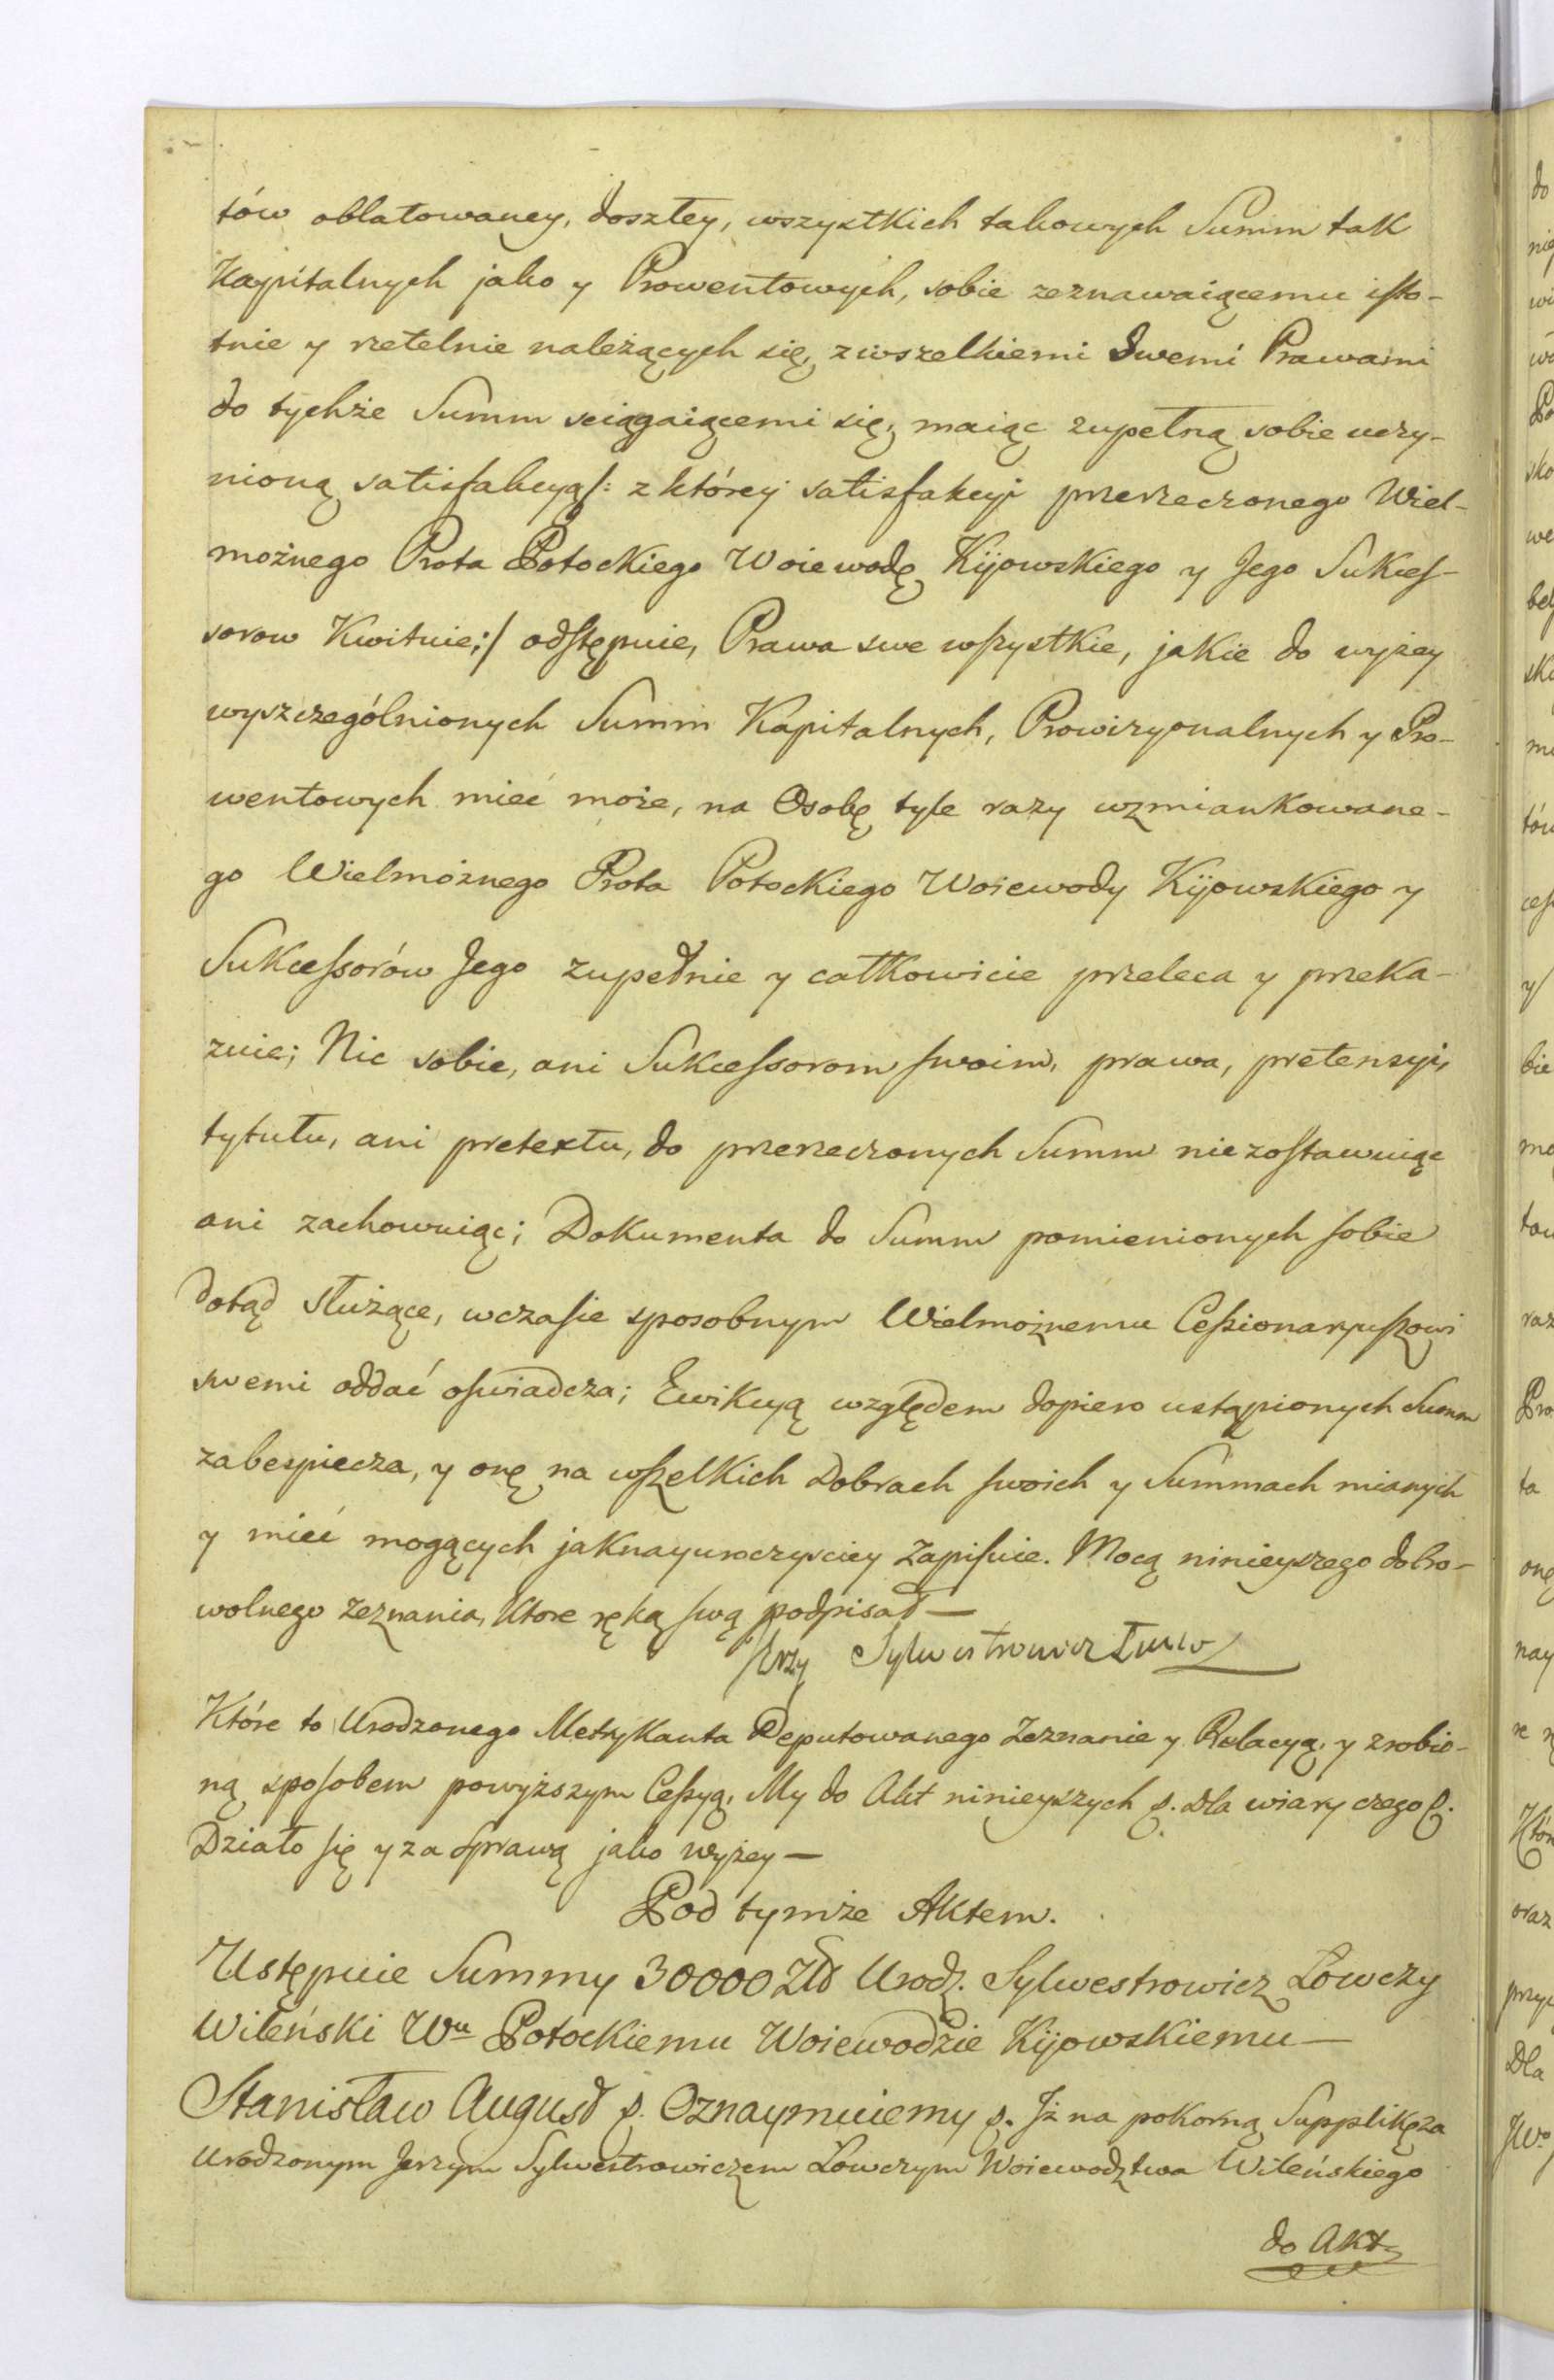 tów oblatowaney, doszłey, wszystkich takowych Summ tak
Kapitalnych jako y Prowentowych, sobie zeznawaiącemu isto-
tnie y rzetelnie należących się, z wszelkiemi Swemi Prawami
do tychże Summ sciągaiącemi się, maiąc zupełną sobie uczy-
nioną satisfakcyą /: z którey satisfakcyi przerzeczonego Wiel-
możnego Prota Potockiego Woiewodę Kijowskiego y Jego Sukces-
sorow Kwituie; :/ odstępuie, Prawa swe wszystkie, jakie do wyżey
wyszczególnionych Summ Kapitalnych, Prowizyonalnych y Pro-
wentowych mieć może, na Osobę tyle razy wzmiankowane-
go Wielmożnego Prota Potockiego Woiewody Kijowskiego y
Sukcessorów Jego zupełnie y całkowicie przeleca y przeka-
zuie; Nic sobie, ani Sukcessorom swoim, prawa, pretensyi,
tytułu, ani pretextu, do przerzeczonych Summ nie zostawuiąc
ani zachowuiąc; Dokumenta do Summ pomienionych sobie
dotąd służące, w czasie sposobnym Wielmożnemu Cessionaryuszowi
swemi oddać oswiadcza; Ewikcyą względem dopiero ustąpionych Summ
zabespiecza, y onę na wszelkich Dobrach swoich y Summach mianych
y mieć mogących jaknayuroczysciey Zapisuie. Mocą ninieyszego dobro-
wolnego zeznania, Ktore ręką swą podpisał —
Jerzy Sylwestrowicz Łmw
Które to Urodzonego Metrykanta Deputowanego Zeznanie y Relacyą, y zrobio-
ną sposobem powyższym Cessyą, My do Akt ninieyszych p. Dla wiary czego p.
Działo się y za Sprawą jako wyżey —
Pod tymże Aktem.
Ustępuie Summy 30000 Złł Urodz. Sylwestrowicz Łowczy
Wileński Wu Potockiemu Woiewodzie Kijowskiemu —
Stanisław August p. Oznaymuiemy p. Iż na pokorną Supplikę za
Urodzonym Jerzym Sylwestrowiczem Łowczym Woiewodztwa Wileńskiego
do Akt